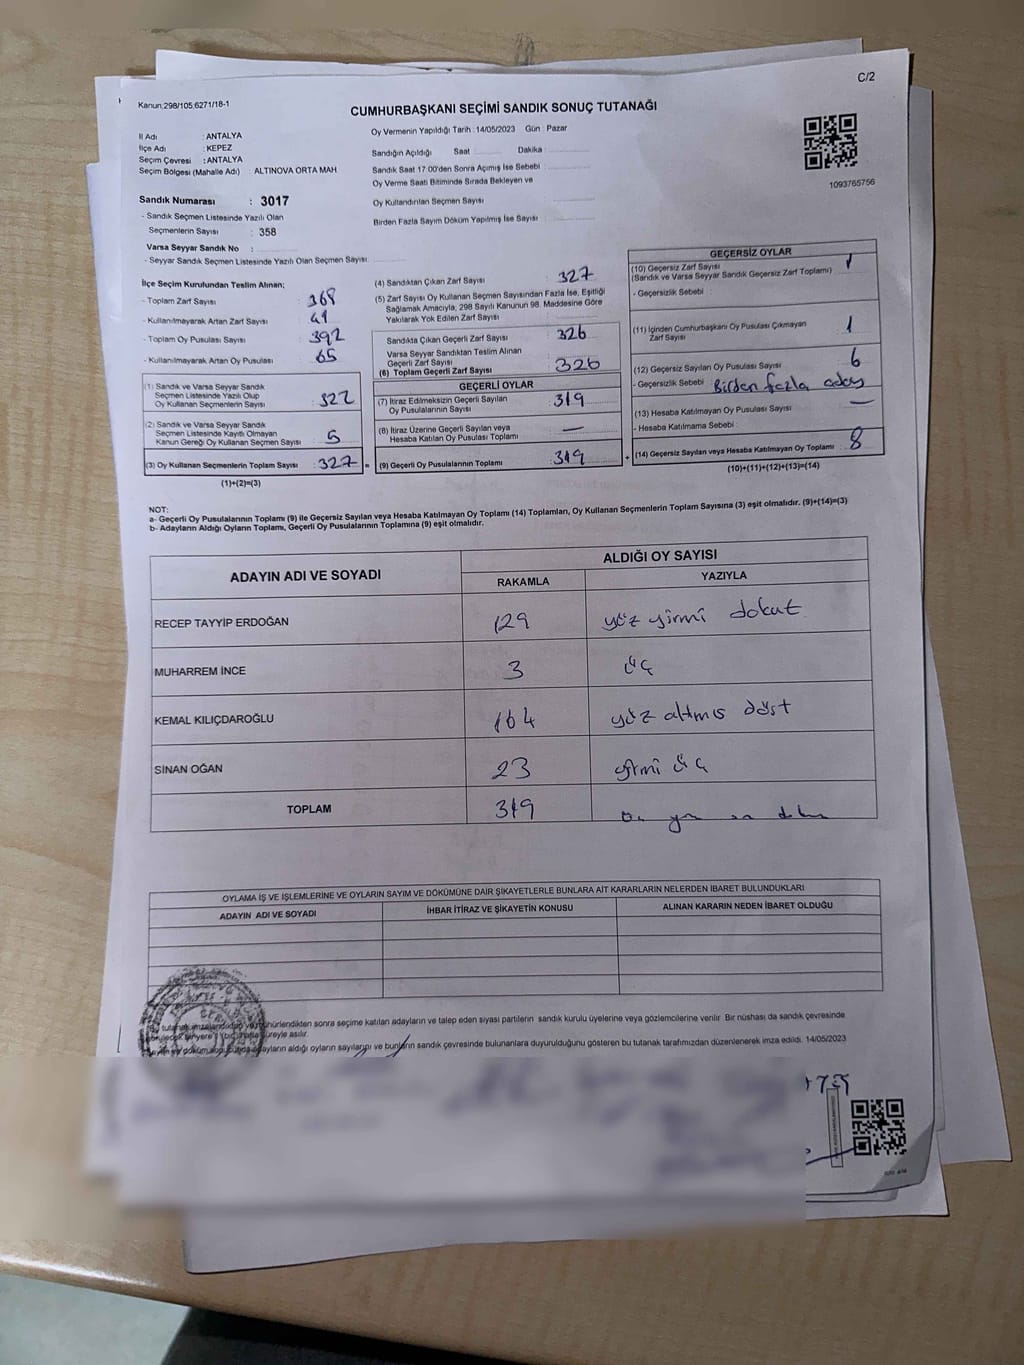 C/2
Kanun:298/105;6271/18-1
CUMHURBAŞKANI SEÇİMİ SANDIK SONUÇ TUTANAĞI
İl Adı : ANTALYA
İlçe Adı : KEPEZ
Seçim Çevresi : ANTALYA
Seçim Bölgesi (Mahalle Adı) ALTINOVA ORTA MAH
Sandık Numarası : 3017
- Sandık Seçmen Listesinde Yazılı Olan
Seçmenlerin Sayısı : 358
Varsa Seyyar Sandık No :
- Seyyar Sandık Seçmen Listesinde Yazılı Olan Seçmen Sayısı:
Oy Vermenin Yapıldığı Tarih : 14/05/2023 Gün : Pazar
Sandığın Açıldığı Saat Dakika :
Sandık Saat 17:00'den Sonra Açımış İse Sebebi :
Oy Verme Saati Bitiminde Sırada Bekleyen ve
Oy Kullandırılan Seçmen Sayısı
Birden Fazla Sayım Döküm Yapılmış İse Sayısı :
1093765756
İlçe Seçim Kurulundan Teslim Alınan;
- Toplam Zarf Sayısı : 368
- Kullanılmayarak Artan Zarf Sayısı : 41
- Toplam Oy Pusulası Sayısı : 392
- Kullanılmayarak Artan Oy Pusulası : 65
(1) Sandık ve Varsa Seyyar Sandık
Seçmen Listesinde Yazılı Olup
Oy Kullanan Seçmenlerin Sayısı : 322
(2) Sandık ve Varsa Seyyar Sandık
Seçmen Listesinde Kayıtlı Olmayan
Kanun Gereği Oy Kullanan Seçmen Sayısı : 5
(3) Oy Kullanan Seçmenlerin Toplam Sayısı : 327 =
(1)+(2)=(3)
(4) Sandıktan Çıkan Zarf Sayısı : 327
(5) Zarf Sayısı Oy Kullanan Seçmen Sayısından Fazla İse, Eşitliği
Sağlamak Amacıyla, 298 Sayılı Kanunun 98. Maddesine Göre
Yakılarak Yok Edilen Zarf Sayısı :
Sandıkta Çıkan Geçerli Zarf Sayısı : 326
Varsa Seyyar Sandıktan Teslim Alınan
Geçerli Zarf Sayısı :
(6) Toplam Geçerli Zarf Sayısı : 326
GEÇERLİ OYLAR
(7) İtiraz Edilmeksizin Geçerli Sayılan
Oy Pusulalarının Sayısı : 319
(8) İtiraz Üzerine Geçerli Sayılan veya
Hesaba Katılan Oy Pusulası Toplamı : —
(9) Geçerli Oy Pusulalarının Toplamı : 319 +
GEÇERSİZ OYLAR
(10) Geçersiz Zarf Sayısı : 1
(Sandık ve Varsa Seyyar Sandık Geçersiz Zarf Toplamı)
- Geçersizlik Sebebi :
(11) İçinden Cumhurbaşkanı Oy Pusulası Çıkmayan
Zarf Sayısı : 1
(12) Geçersiz Sayılan Oy Pusulası Sayısı : 6
- Geçersizlik Sebebi : Birden fazla aday
(13) Hesaba Katılmayan Oy Pusulası Sayısı : —
- Hesaba Katılmama Sebebi :
(14) Geçersiz Sayılan veya Hesaba Katılmayan Oy Toplamı : 8
(10)+(11)+(12)+(13)=(14)
NOT:
a- Geçerli Oy Pusulalarının Toplamı (9) ile Geçersiz Sayılan veya Hesaba Katılmayan Oy Toplamı (14) Toplamları, Oy Kullanan Seçmenlerin Toplam Sayısına (3) eşit olmalıdır. (9)+(14)=(3)
b- Adayların Aldığı Oyların Toplamı, Geçerli Oy Pusulalarının Toplamına (9) eşit olmalıdır.
ADAYIN ADI VE SOYADI
ALDIĞI OY SAYISI
RAKAMLA YAZIYLA
RECEP TAYYİP ERDOĞAN 129 yüz yirmi dokuz
MUHARREM İNCE 3 üç
KEMAL KILIÇDAROĞLU 164 yüz altmış dört
SİNAN OĞAN 23 yirmi üç
TOPLAM 319
OYLAMA İŞ VE İŞLEMLERİNE VE OYLARIN SAYIM VE DÖKÜMÜNE DAİR ŞİKAYETLERLE BUNLARA AİT KARARLARIN NELERDEN İBARET BULUNDUKLARI
ADAYIN ADI VE SOYADI İHBAR İTİRAZ VE ŞİKAYETİN KONUSU ALINAN KARARIN NEDEN İBARET OLDUĞU
sonra seçime katılan adayların ve talep eden siyasi partilerin sandık kurulu üyelerine veya gözlemcilerine verilir. Bir nüshası da sandık çevresinde
süreyle asılır.
adayların aldığı oyların sayılarını ve bunların sandık çevresinde bulunanlara duyurulduğunu gösteren bu tutanak tarafımızdan düzenlenerek imza edildi. 14/05/2023